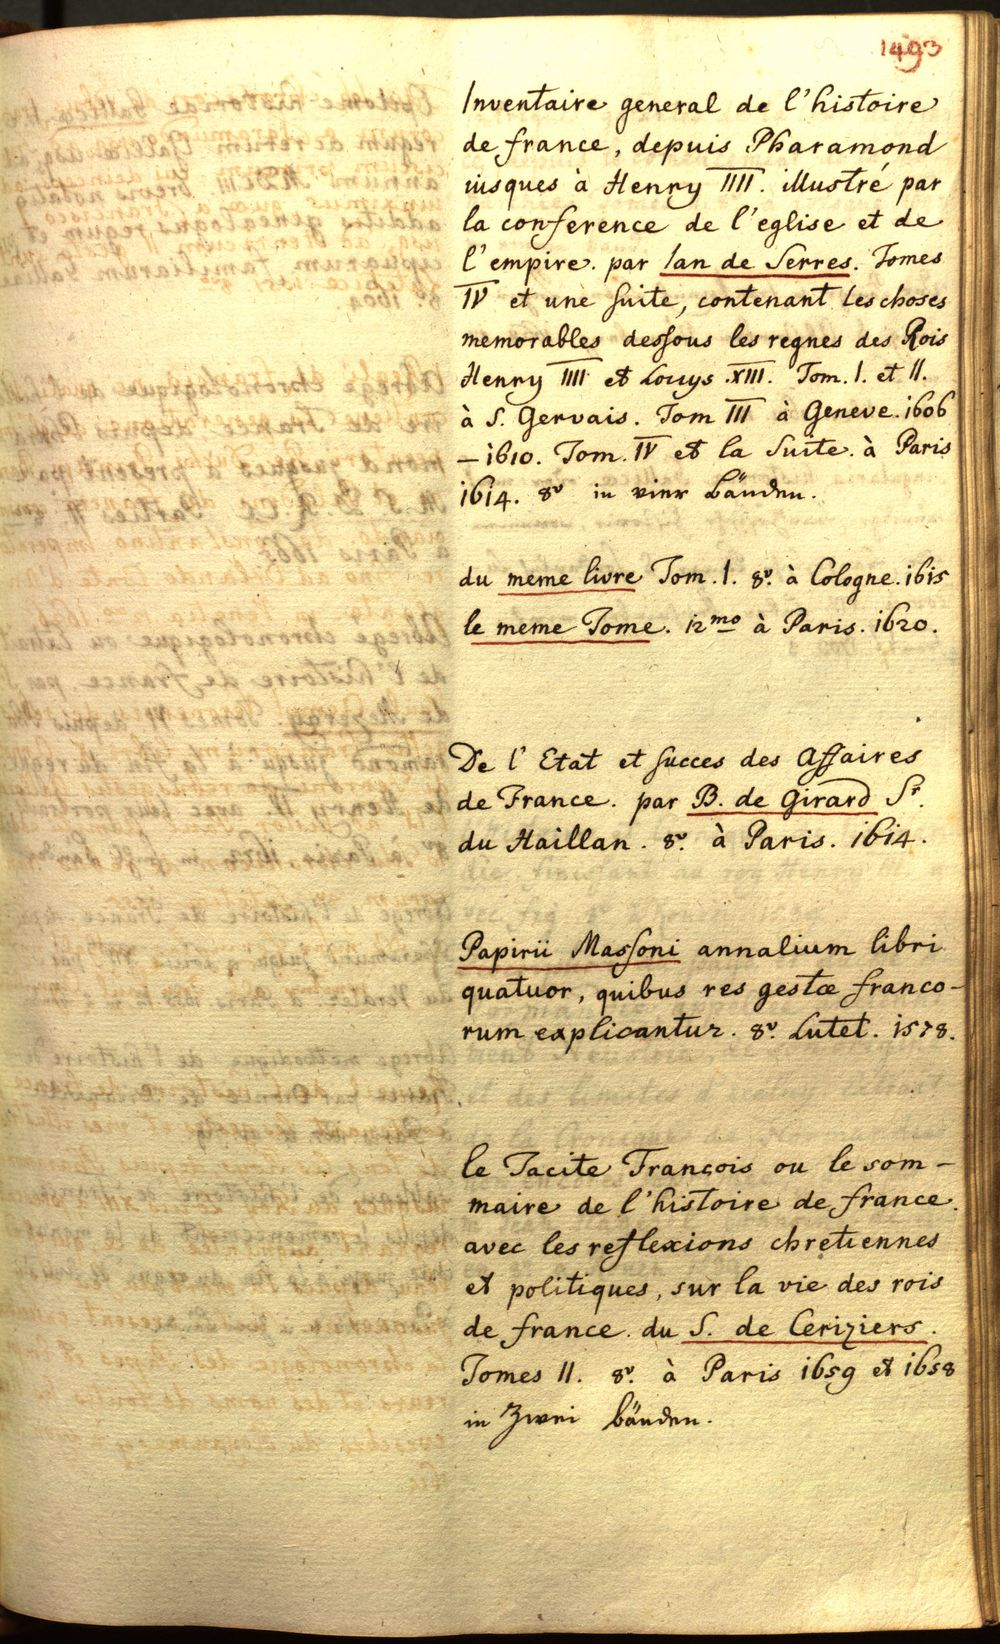 1493
Inventaire general de l'histoire
de france, depuis Pharamond
iusques à Henry IIII. illustré par
la conference de l'eglise et de
l'empire. par Ian de Serres. Tomes
IV et une suite, contenant les choses
memorables dessous les regnes des Rois
Henry IIII et Louys XIII. Tom. I. et II.
à S. Gervais. Tom III à Geneve. 1606
–1610. Tom. IV et la Suite. à Paris
1614. 8º in vier bänden.
du meme livre Tom. I. 8º. à Cologne. 1615
le meme Tome. 12mo à Paris. 1620.
De l'Etat et succes des Affaires
de France. par B. de Girard Sr.
du Haillan. 8º. à Paris. 1614.
Papirii Massoni annalium libri
quatuor, quibus res gestæ franco-
rum explicantur. 8º. Lutet. 1578.
le Tacite François ou le som-
maire de l'histoire de france.
avec les reflexions chretiennes
et politiques, sur la vie des rois
de france. du S. de Ceriziers.
Tomes II. 8º. à Paris 1659 et 1658
in Zwei bänden.